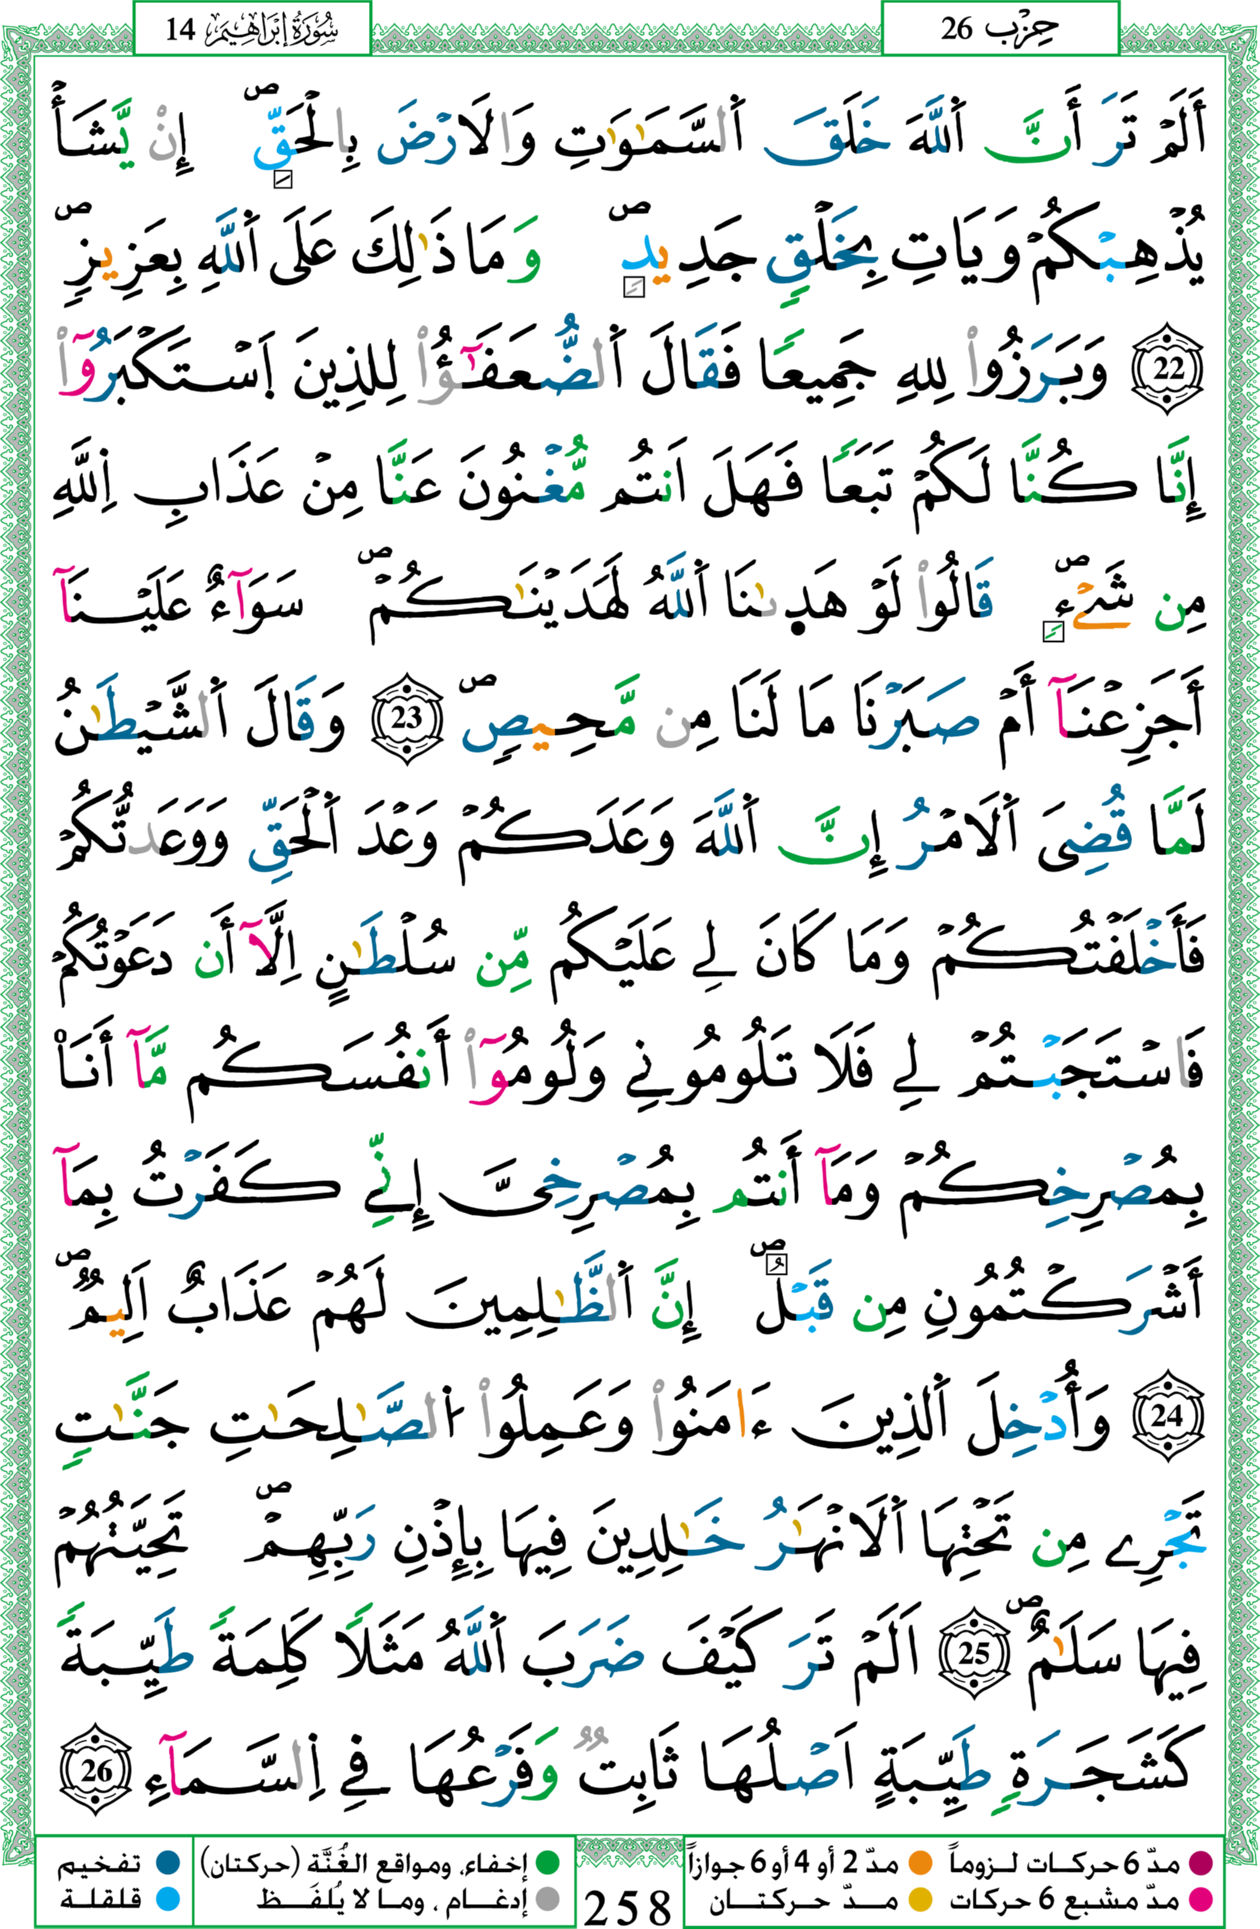 حِزْب 26
سُورَةُ إِبْرَاهِيم 14
أَلَمْ تَرَ أَنَّ اَ۬للَّهَ خَلَقَ اَ۬لسَّمَٰوَٰتِ وَالَارْضَ بِالْحَقِّۖ إِنْ يَّشَأْ
يُذْهِبْكُمْ وَيَاتِ بِخَلْقٖ جَدِيدٖۖ وَمَا ذَٰلِكَ عَلَى اَ۬للَّهِ بِعَزِيزٖۖ
22 وَبَرَزُواْ لِلهِ جَمِيعاٗ فَقَالَ اَ۬لضُّعَفَٰٓؤُاْ لِلذِينَ اَ۪سْتَكْبَرُوٓاْ
إِنَّا كُنَّا لَكُمْ تَبَعاٗ فَهَلَ اَنتُم مُّغْنُونَ عَنَّا مِنْ عَذَابِ اِ۬للَّهِ
مِن شَےْءٖۖ قَالُواْ لَوْ هَد۪ىٰنَا اَ۬للَّهُ لَهَدَيْنَٰكُمْۖ سَوَآءٌ عَلَيْنَآ
أَجَزِعْنَآ أَمْ صَبَرْنَا مَا لَنَا مِن مَّحِيصٖۖ 23 وَقَالَ اَ۬لشَّيْطَٰنُ
لَمَّا قُضِيَ اَ۬لَامْرُ إِنَّ اَ۬للَّهَ وَعَدَكُمْ وَعْدَ اَ۬لْحَقِّ وَوَعَدتُّكُمْ
فَأَخْلَفْتُكُمْ وَمَا كَانَ لِے عَلَيْكُم مِّن سُلْطَٰنٍ اِلَّآ أَن دَعَوْتُكُمْ
فَاسْتَجَبْتُمْ لِے فَلَا تَلُومُونِے وَلُومُوٓاْ أَنفُسَكُم مَّآ أَنَاْ
بِمُصْرِخِكُمْ وَمَآ أَنتُم بِمُصْرِخِيَّ إِنِّے كَفَرْتُ بِمَآ
أَشْرَكْتُمُونِ مِن قَبْلُۖ إِنَّ اَ۬لظَّٰلِمِينَ لَهُمْ عَذَابٌ اَلِيمٞۖ
24 وَأُدْخِلَ اَ۬لذِينَ ءَامَنُواْ وَعَمِلُواْ اُ۬لصَّٰلِحَٰتِ جَنَّٰتٖ
تَجْرِے مِن تَحْتِهَا اَ۬لَانْهَٰرُ خَٰلِدِينَ فِيهَا بِإِذْنِ رَبِّهِمْۖ تَحِيَّتُهُمْ
فِيهَا سَلَٰمٌۖ 25 اَلَمْ تَرَ كَيْفَ ضَرَبَ اَ۬للَّهُ مَثَلاٗ كَلِمَةٗ طَيِّبَةٗ
كَشَجَرَةٖ طَيِّبَةٍ اَصْلُهَا ثَابِتٞ وَفَرْعُهَا فِے اِ۬لسَّمَآءِ 26
مدّ 6 حركات لـزوماً مدّ 2 أو 4 أو 6 جوازاً إخفاء، ومواقع الغُنَّة (حركتان) تفخيم
مدّ مشبع 6 حركات مـدّ حركتـان إدغام ، وما لا يُلفَـظ قلقلة
258